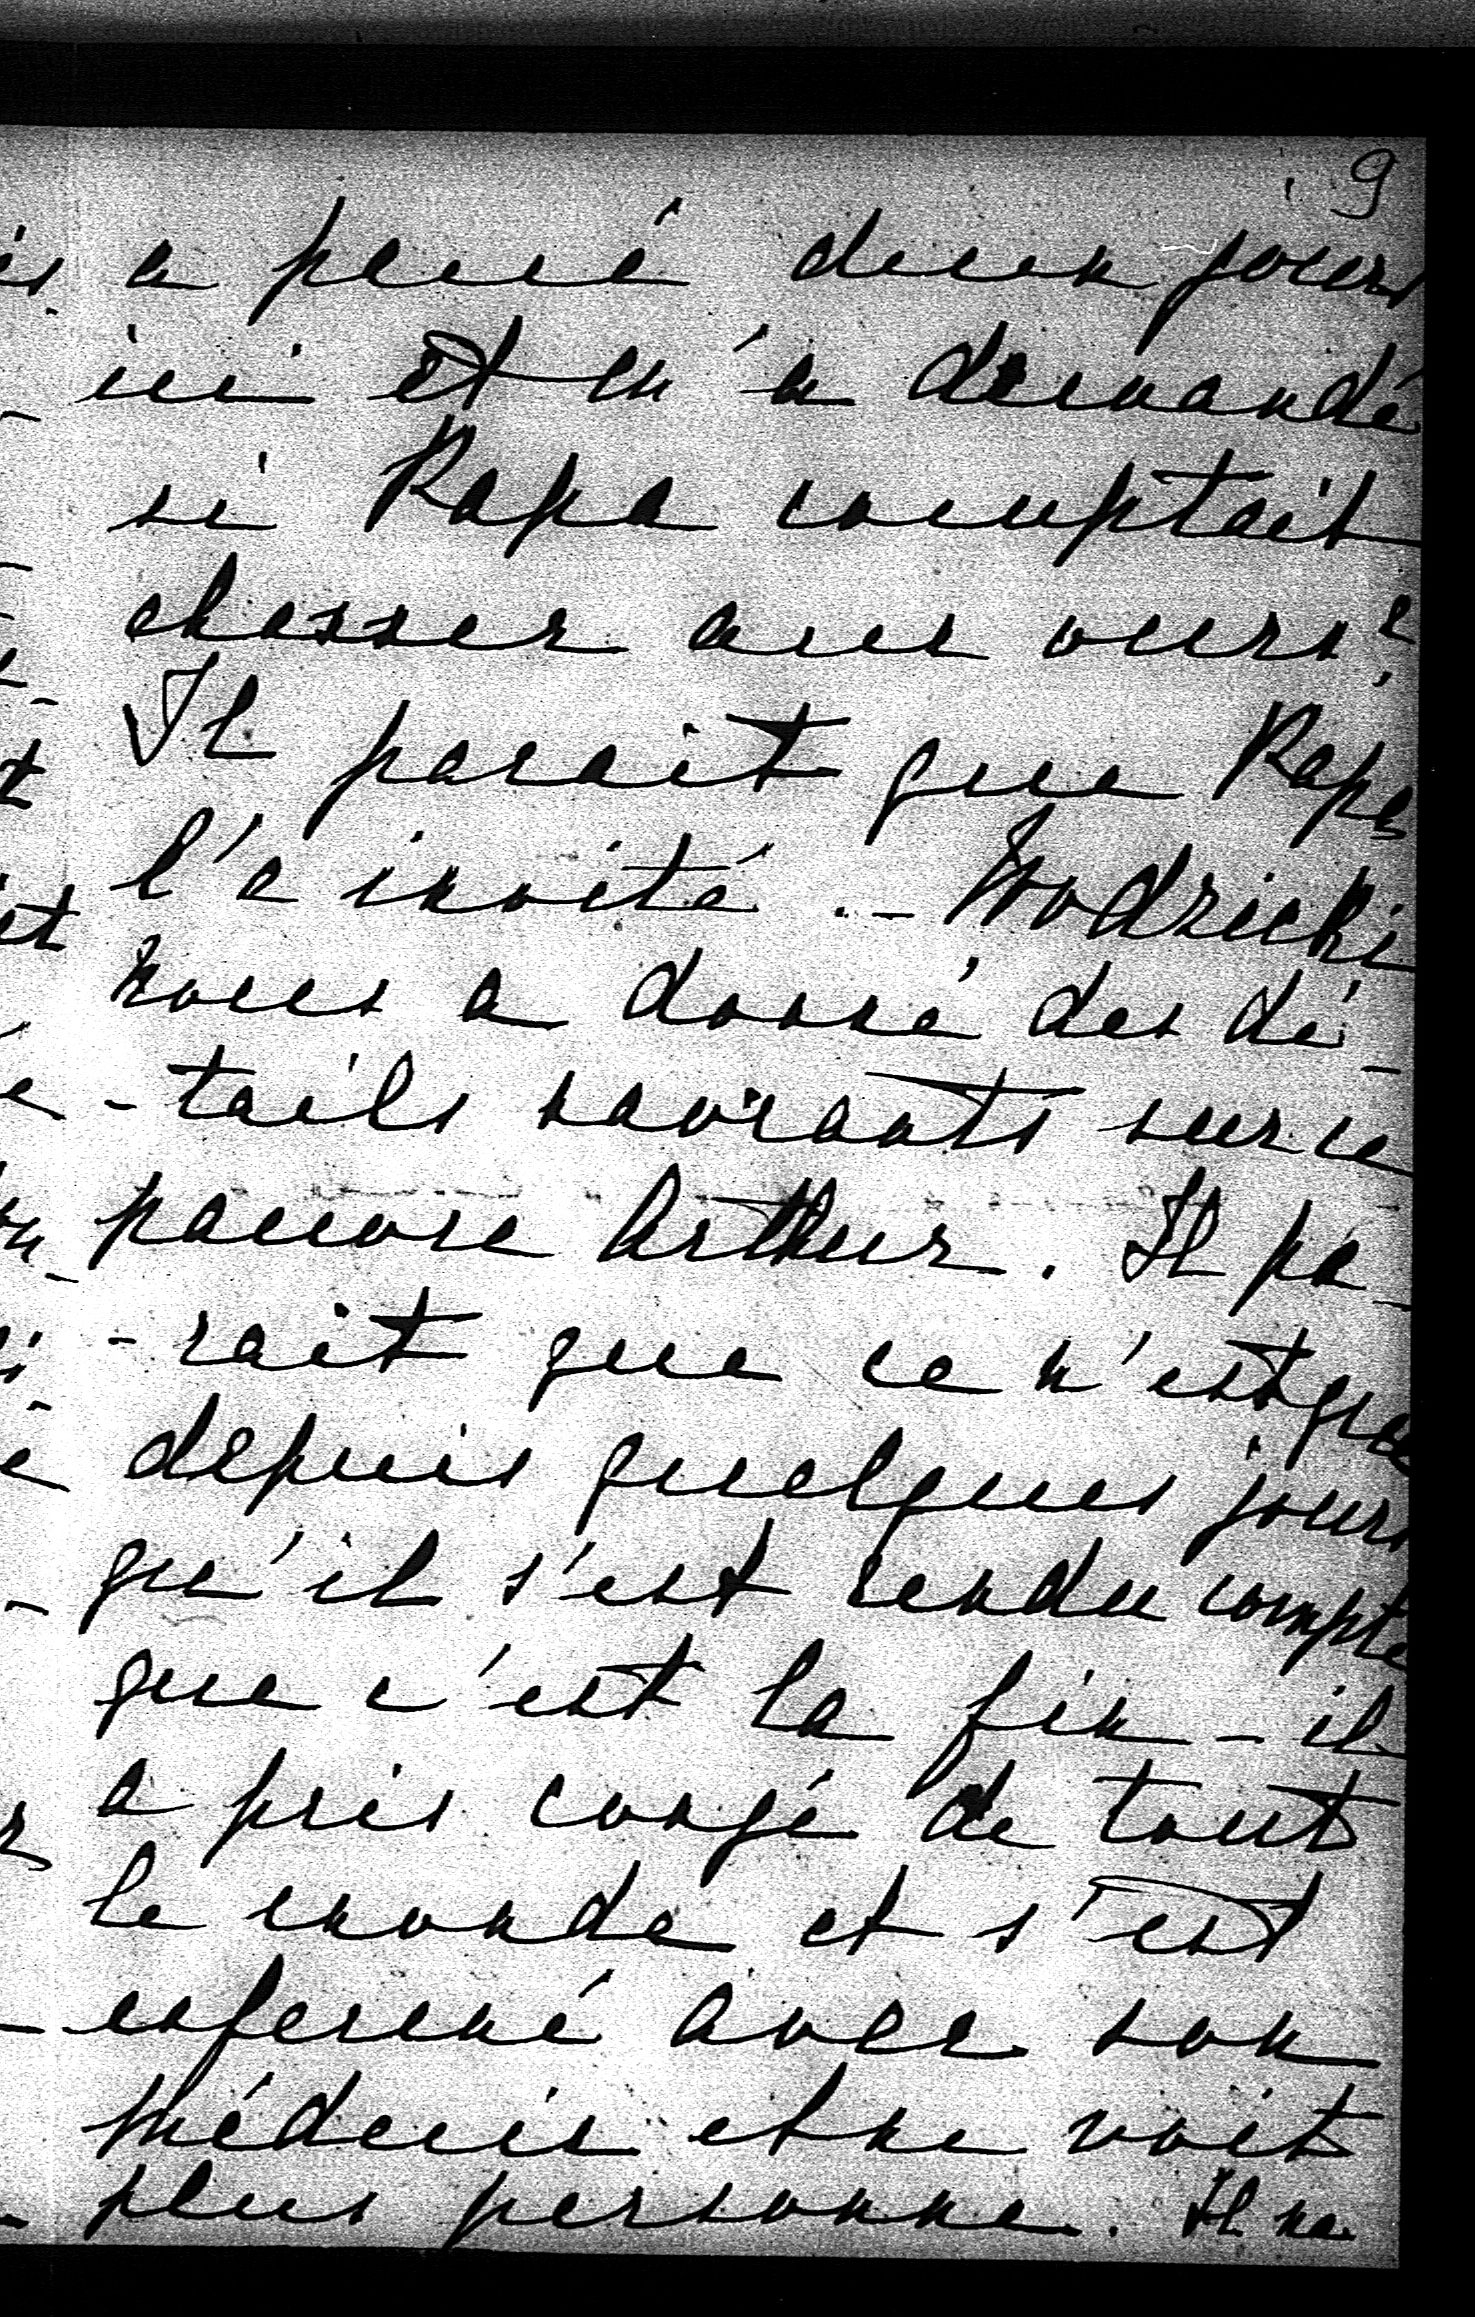 9
a passé deux jours
ici et m'a demandé
si Papa comptait
chasser aux ours?
Il parait que Papa
l'a invité. - Wodzicki
nous a donné des dé-
-tails navrants sur ce
pauvre Arthur. Il pa-
-rait que ce n'est que
depuis quelques jours
qu'il s'est rendu compte
que c'est la fin - il
a pris congé de tout
le monde et s'est
enfermé avec son
médecin et ne voit
plus personne. Il ne